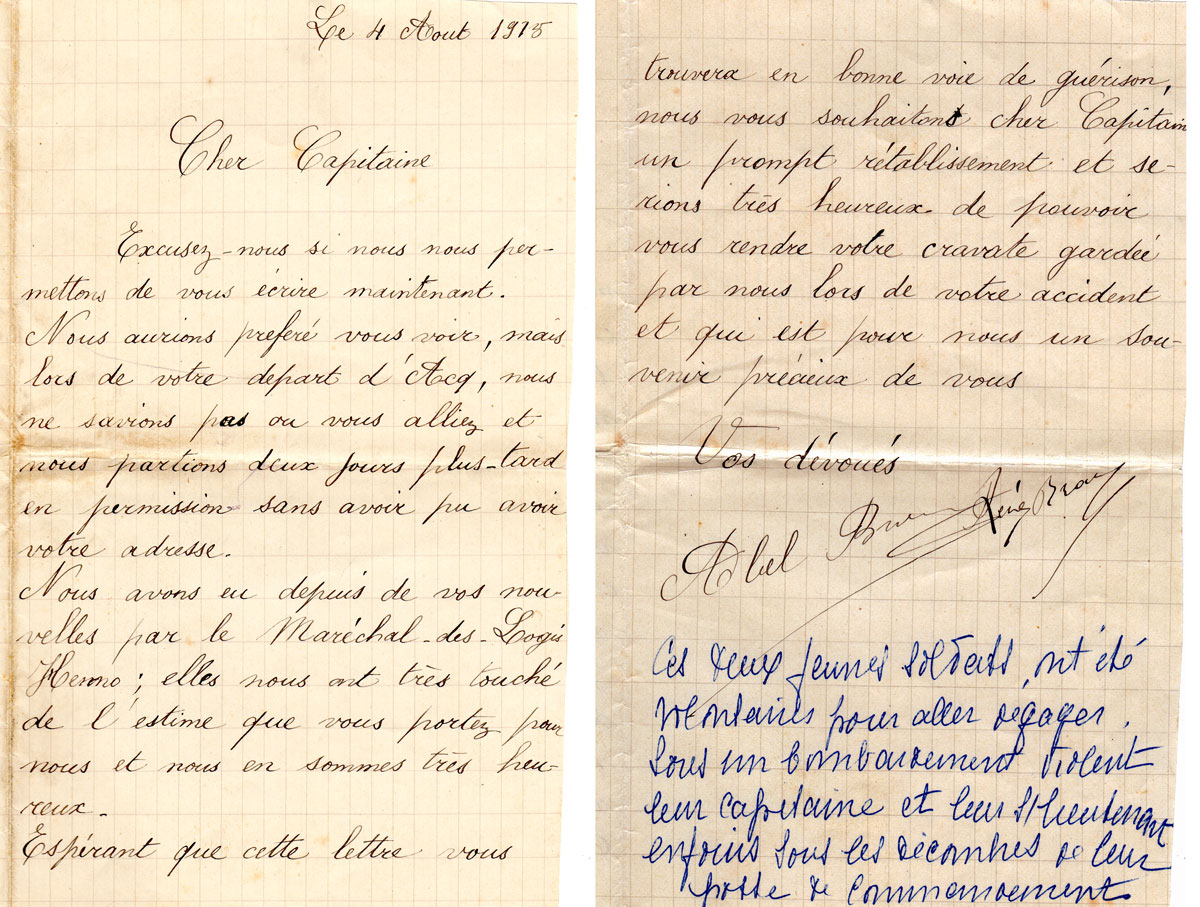 Le 4 Aout 1915
Cher Capitaine
Excusez-nous si nous nous per-
mettons de vous écrire maintenant.
Nous aurions preferé vous voir, mais
lors de votre depart d'Acq, nous
ne savions pas ou vous alliez et
nous partions deux jours plus-tard
en permission sans avoir pu avoir
votre adresse.
Nous avons eu depuis de vos nou-
velles par le Maréchal-des-Logis
; elles nous ont très touché
de l'estime que vous portez pour
nous et nous en sommes très heu-
reux.
Espérant que cette lettre vous
trouvera en bonne voie de guérison,
nous vous souhaitons cher Capitain
un prompt rétablissement et se-
rions très heureux de pouvoir
vous rendre votre cravate gardée
par nous lors de votre accident
et qui est pour nous un sou-
venir précieux de vous
Vos dévoués
Abel René
Ces deux jeunes soldats, ont été
volontaires pour aller dégager.
sous un bombardement violent
leur capitaine et leur S/lieutenant
enfouis sous les décombres de leur
poste de commandement